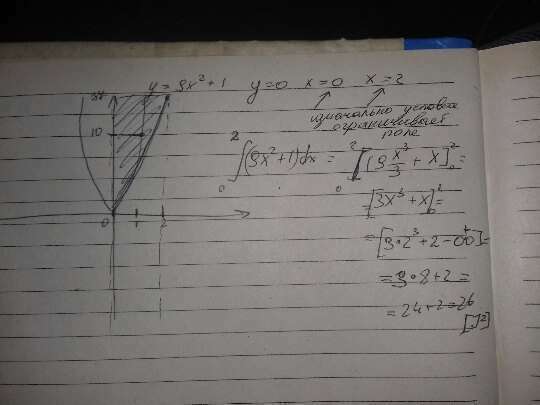 y = 9x² + 1   y=0   x=0   x=2
изначально условие
ограничивает
поле
10
0 1 2
∫₀² (9x²+1)dx = ∫₀² [9 x³/3 + x]₀² =
= [3x³ + x]₀² =
= [3·2³ + 2 - 0] =
= 3·8 + 2 =
= 24 + 2 = 26
[j²]